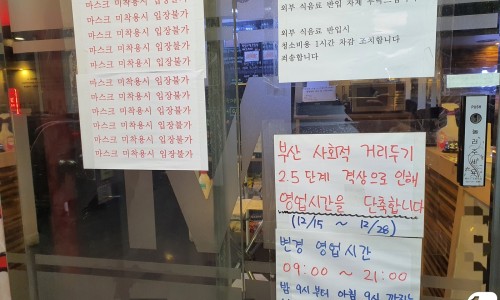 마스크 미착용시 입장불가
마스크 미착용시 입장불가
마스크 미착용시 입장불가
마스크 미착용시 입장불가
마스크 미착용시 입장불가
마스크 미착용시 입장불가
마스크 미착용시 입장불가
마스크 미착용시 입장불가
마스크 미착용시 입장불가
마스크 미착용시 입장불가
외부 식음료 반입 자제
외부 식음료 반입시
청소비용 1시간 차감 조치합니다
죄송합니다
부산 사회적 거리두기
2.5 단계 격상으로 인해
영업시간을 단축합니다
(12/15 ~ 12/28)
변경 영업시간
09:00 ~ 21:00
밤 9시부터 아침 9시 까지는